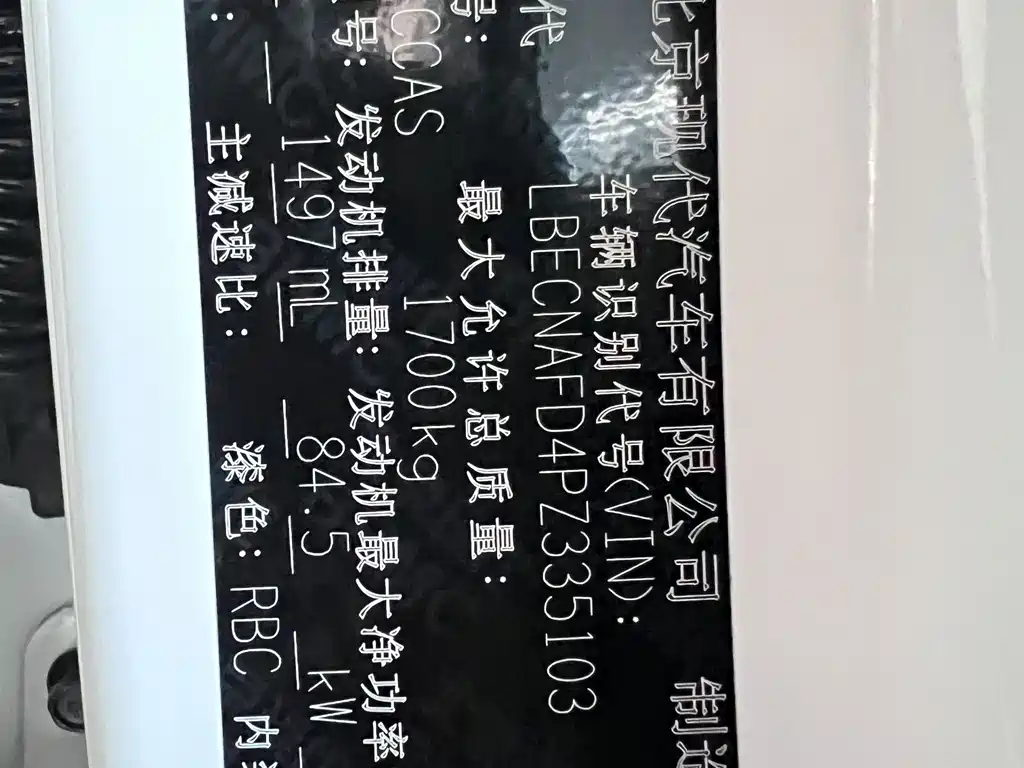 北京现代汽车有限公司 制造
车辆识别代号(VIN):
代 LBECNAFD4PZ335103
号: 最大允许总质量:
CCAS 1700kg
号: 发动机排量: 发动机最大净功率
1497mL 84.5 kW
: 主减速比: 漆色: RBC 内